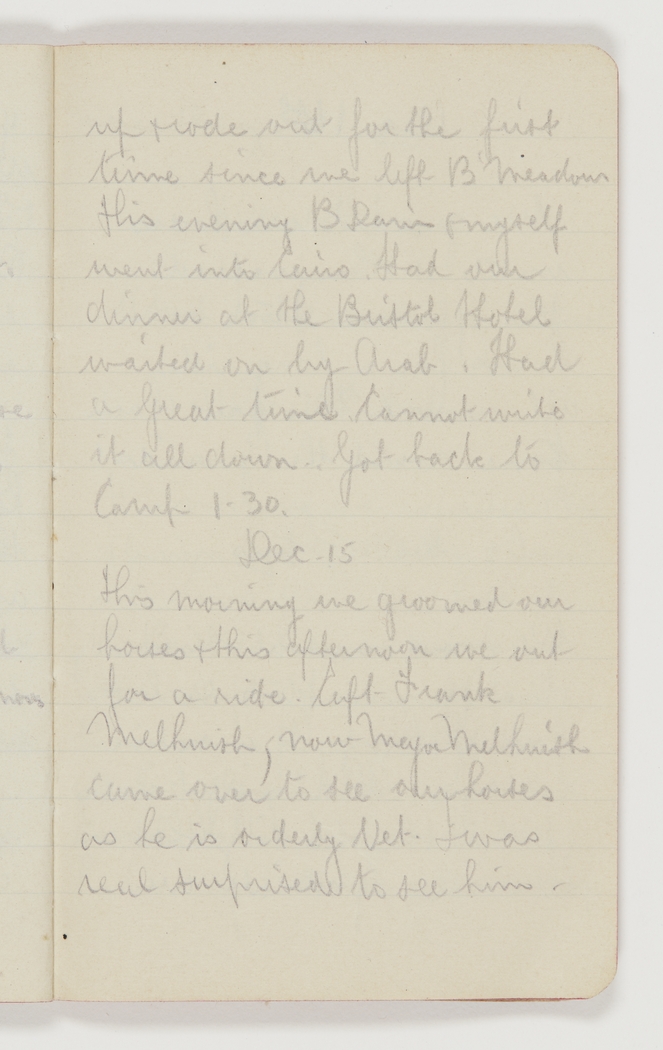 up & rode out for the first
time since we left B'Meadows
This evening B Davis & myself
went into Cairo. Had our
dinner at the Bristol Hotel
waited on by Arab. Had
a Great time. Cannot write
it all down.. Got back to
Camp 1-30.
Dec-15
This morning we groomed our
horses & this afternoon we out
for a ride. Capt Frank
Melhuish, now Major Melhuish
came over to see our horses
as he is orderly Vet. I was
real surprised to see him -